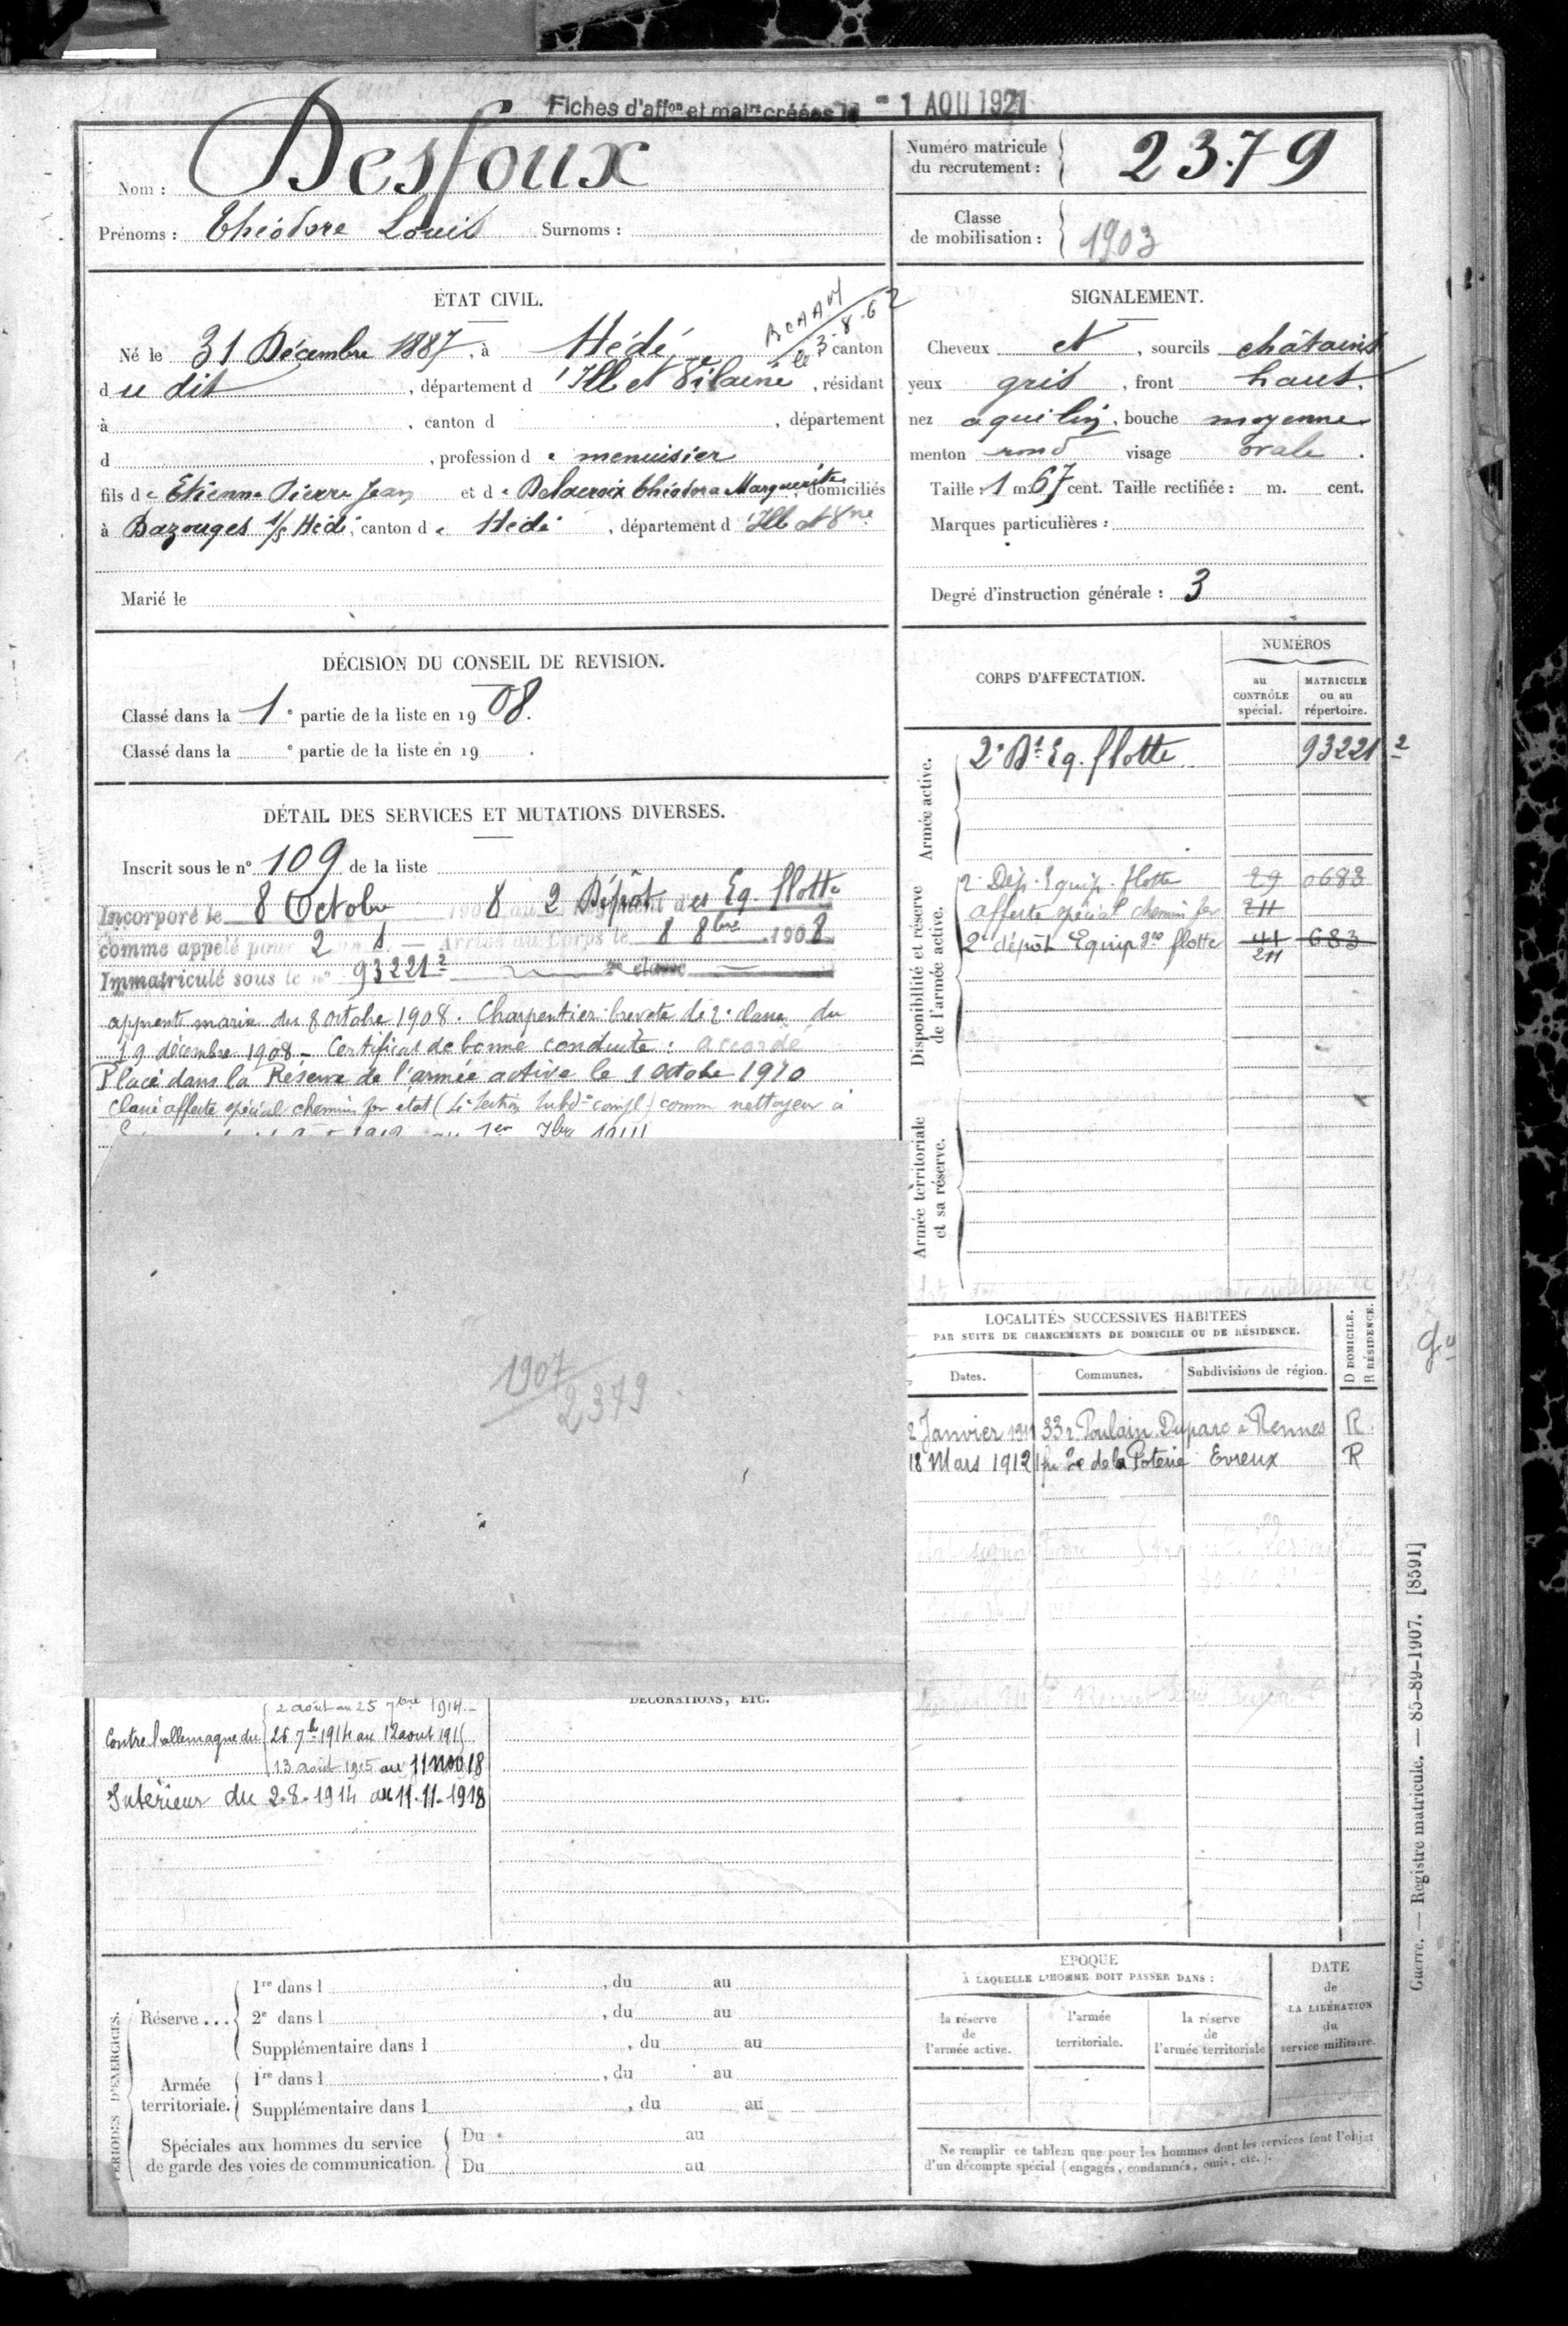 Fiches d'affon et matre créées le - 1 AOU 1921
Nom : Desfoux
Prénoms : Théodore Louis Surnoms :
Numéro matricule du recrutement : 2379
Classe de mobilisation : 1903
ÉTAT CIVIL.
Né le 31 Décembre 1887, à Hédé, canton
d u dit, département d 'Ille et Vilaine, résidant
à , canton d , département
d , profession d e menuisier
fils de Etienne Pierre Jean et de Delacroix Théodora Marguerite, domiciliés
à Bazouges s/s Hédé, canton d e Hédé, département d 'Ille et Vne
Marié le
le 3-8-62
SIGNALEMENT.
Cheveux et, sourcils châtains
yeux gris, front haut.
nez aquilin, bouche moyenne
menton rond visage ovale.
Taille : 1 m. 67 cent. Taille rectifiée : m. cent.
Marques particulières :
Degré d'instruction générale : 3
DÉCISION DU CONSEIL DE REVISION.
Classé dans la 1e partie de la liste en 1908.
Classé dans la e partie de la liste en 19 .
DÉTAIL DES SERVICES ET MUTATIONS DIVERSES.
Inscrit sous le n° 109 de la liste
Incorporé le 8 Octobre 1908 au 2 Dépôt des Eq. flotte
comme appelé pour 2 — Arrivé au Corps le 8 8bre 1908
Immatriculé sous le n° 93221² 2e classe
apprenti marin du 8 octobre 1908. Charpentier breveté de 2e classe du
19 décembre 1908 – Certificat de bonne conduite : accordé
Placé dans la Réserve de l'armée active le 1 octobre 1910
Classé affecté spécial chemin fer état (4e Section Subdon compl) comme nettoyeur à
1907
2379
CORPS D'AFFECTATION.
NUMÉROS
au CONTRÔLE spécial.
MATRICULE ou au répertoire.
Armée active.
2e Dt Eq. flotte 93221²
Disponibilité et réserve de l'armée active.
2 Dép. Equip. flotte 29 0683
affecté spécial chemin fer 211
2e dépôt Equipges flotte 41 683
211
Armée territoriale et sa réserve.
LOCALITÉS SUCCESSIVES HABITÉES
PAR SUITE DE CHANGEMENTS DE DOMICILE OU DE RÉSIDENCE.
Dates. Communes. Subdivisions de région. D DOMICILE. R RÉSIDENCE.
2 Janvier 1911 33 r. Poulain Duparc à Rennes R.
18 Mars 1912 de la Poterie Evreux R
DÉCORATIONS, ETC.
2 août au 25 7bre 1914 –
Contre l'allemagne du 26 7bre 1914 au 12 aout 1915
13 août 1915 au 11 nov 18
Intérieur du 2-8-1914 au 11-11-1918
PÉRIODES D'EXERCICES.
Réserve ...
1re dans l , du au
2e dans l , du au
Supplémentaire dans l , du au
Armée territoriale.
1re dans l , du au
Supplémentaire dans l , du au
Spéciales aux hommes du service de garde des voies de communication.
Du au
Du au
ÉPOQUE
À LAQUELLE L'HOMME DOIT PASSER DANS :
la réserve de l'armée active.
l'armée territoriale.
la réserve de l'armée territoriale
DATE de LA LIBÉRATION du service militaire.
Ne remplir ce tableau que pour les hommes dont les services font l'objet
d'un décompte spécial (engagés, condamnés, omis, etc.).
Guerre. — Registre matricule. — 85-89-1907. [8591]